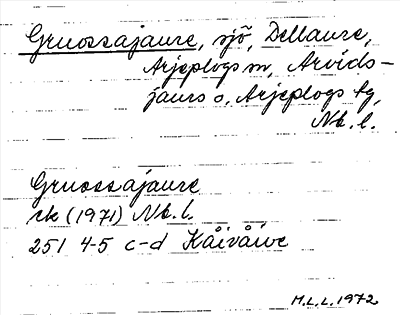 Gruossajaure, sjö, Dellaure,
Arjeplogs sn, Arvids-
jaurs o. Arjeplogs tg,
Nb. l.
Gruossajaure
ek (1971) Nb. l.
251 4-5 c-d Kåivåive
M.L.L. 1972